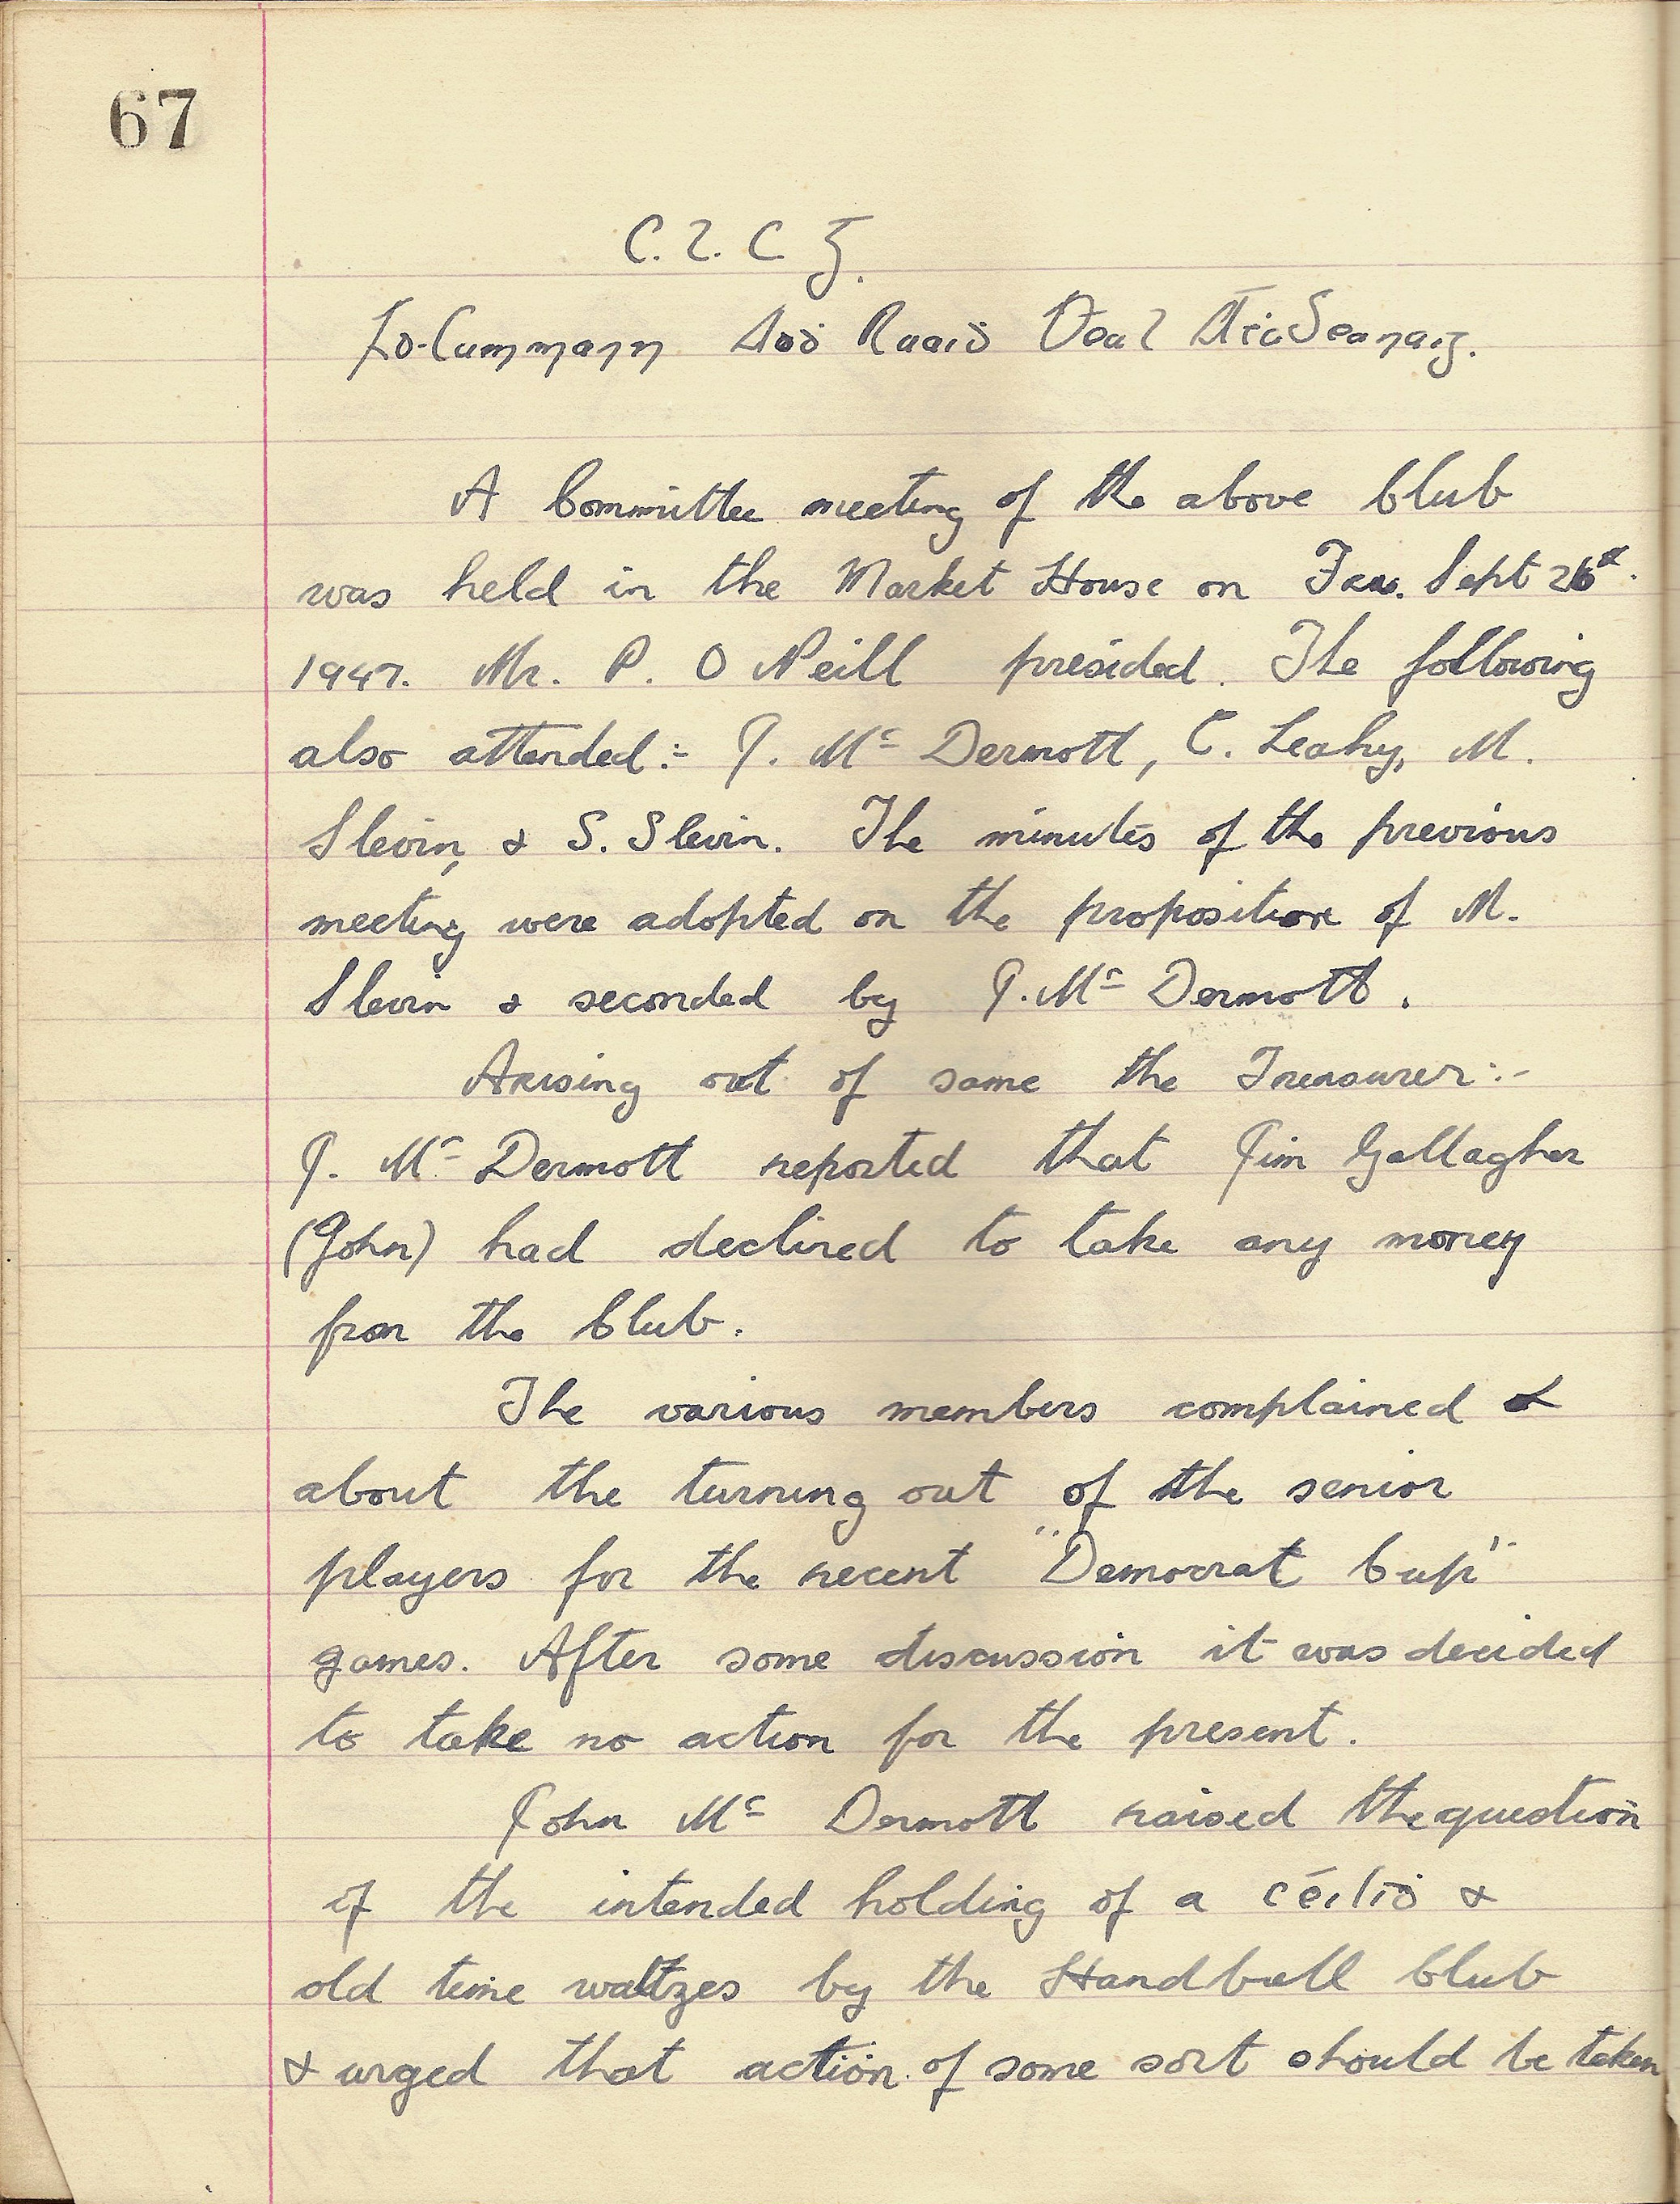 67
C. L. C G.
Fo-Cummann Aoḋ Ruaiḋ Beal Áṫa Seanaig.
A Committee meeting of the above Club
was held in the Market House on Fri. Sept 26th.
1947. Mr. P. O Neill presided. The following
also attended:- J. Mc Dermott, C. Leahy, M.
Slevin, & S. Slevin. The minutes of the previous
meeting were adopted on the proposition of M.
Slevin & seconded by J. Mc Dermott.
Arising out of same the Treasurer:-
J. Mc Dermott reported that Jim Gallagher
(John) had declined to take any money
from the Club.
The various members complained
about the turning out of the senior
players for the recent "Democrat Cup"
games. After some discussion it was decided
to take no action for the present.
John Mc Dermott raised the question
if the intended holding of a céiliḋ &
old time waltzes by the Handball Club
& urged that action of some sort should be taken